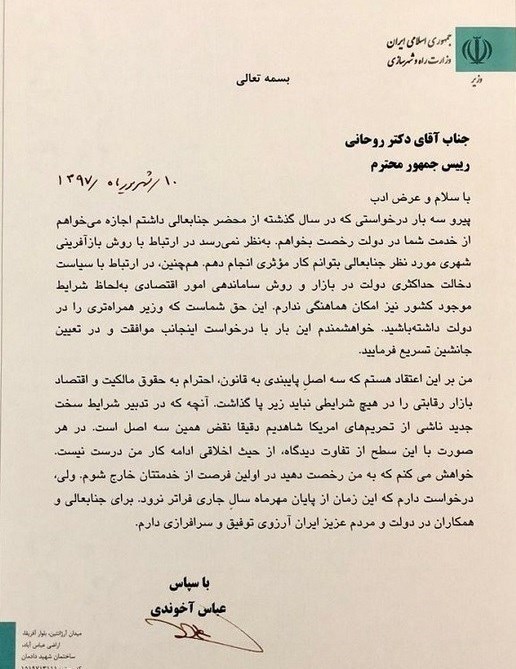 جمهوری اسلامی ایران
وزارت راه و شهرسازی
وزیر
بسمه تعالی
جناب آقای دکتر روحانی
رییس جمهور محترم
۱۰/شهریور ماه/۱۳۹۷
با سلام و عرض ادب
پیرو سه بار درخواستی که در سال گذشته از محضر جنابعالی داشتم اجازه می‌خواهم
از خدمت شما در دولت رخصت بخواهم. به‌نظر نمی‌رسد در ارتباط با روش بازآفرینی
شهری مورد نظر جنابعالی بتوانم کار مؤثری انجام دهم. هم‌چنین، در ارتباط با سیاست
دخالت حداکثری دولت در بازار و روش ساماندهی امور اقتصادی به‌لحاظ شرایط
موجود کشور نیز امکان هماهنگی ندارم. این حق شماست که وزیر همراه‌تری را در
دولت داشته‌باشید. خواهشمندم این بار با درخواست اینجانب موافقت و در تعیین
جانشین تسریع فرمایید.
من بر این اعتقاد هستم که سه اصلِ پایبندی به قانون، احترام به حقوق مالکیت و اقتصاد
بازار رقابتی را در هیچ شرایطی نباید زیر پا گذاشت. آنچه که در تدبیر شرایط سخت
جدید ناشی از تحریم‌های امریکا شاهدیم دقیقا نقض همین سه اصل است. در هر
صورت با این سطح از تفاوت دیدگاه، از حیث اخلاقی ادامه کار من درست نیست.
خواهش می کنم که به من رخصت دهید در اولین فرصت از خدمتتان خارج شوم. ولی،
درخواست دارم که این زمان از پایان مهرماه سالِ جاری فراتر نرود. برای جنابعالی و
همکاران در دولت و مردم عزیز ایران آرزوی توفیق و سرافرازی دارم.
با سپاس
عباس آخوندی
میدان آرژانتین، بلوار آفریقا،
اراضی عباس آباد،
ساختمان شهید دادمان